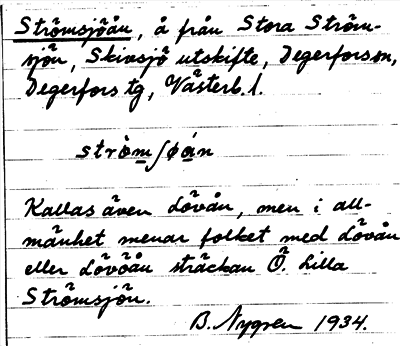 Strömsjöån, å från Stora Ström-
sjön, Skivsjö utskifte, Degerfors sn,
Degerfors tg, Västerb. l.
stròm̲ʃøá̲n
Kallas även Lövån, men i all-
mänhet menar folket med Lövån
eller Lövöån sträckan Ö. Lilla
Strömsjön.
B. Nygren 1934.